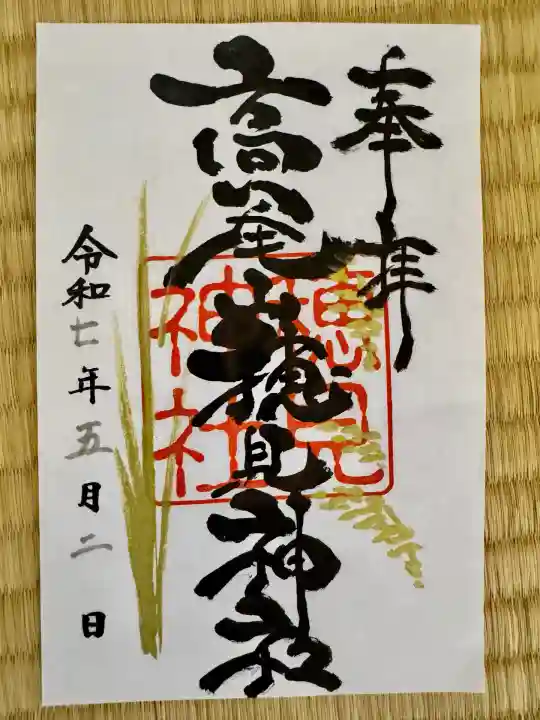 奉拝
高尾山穂見神社
穂見
神社
令和七年五月二日